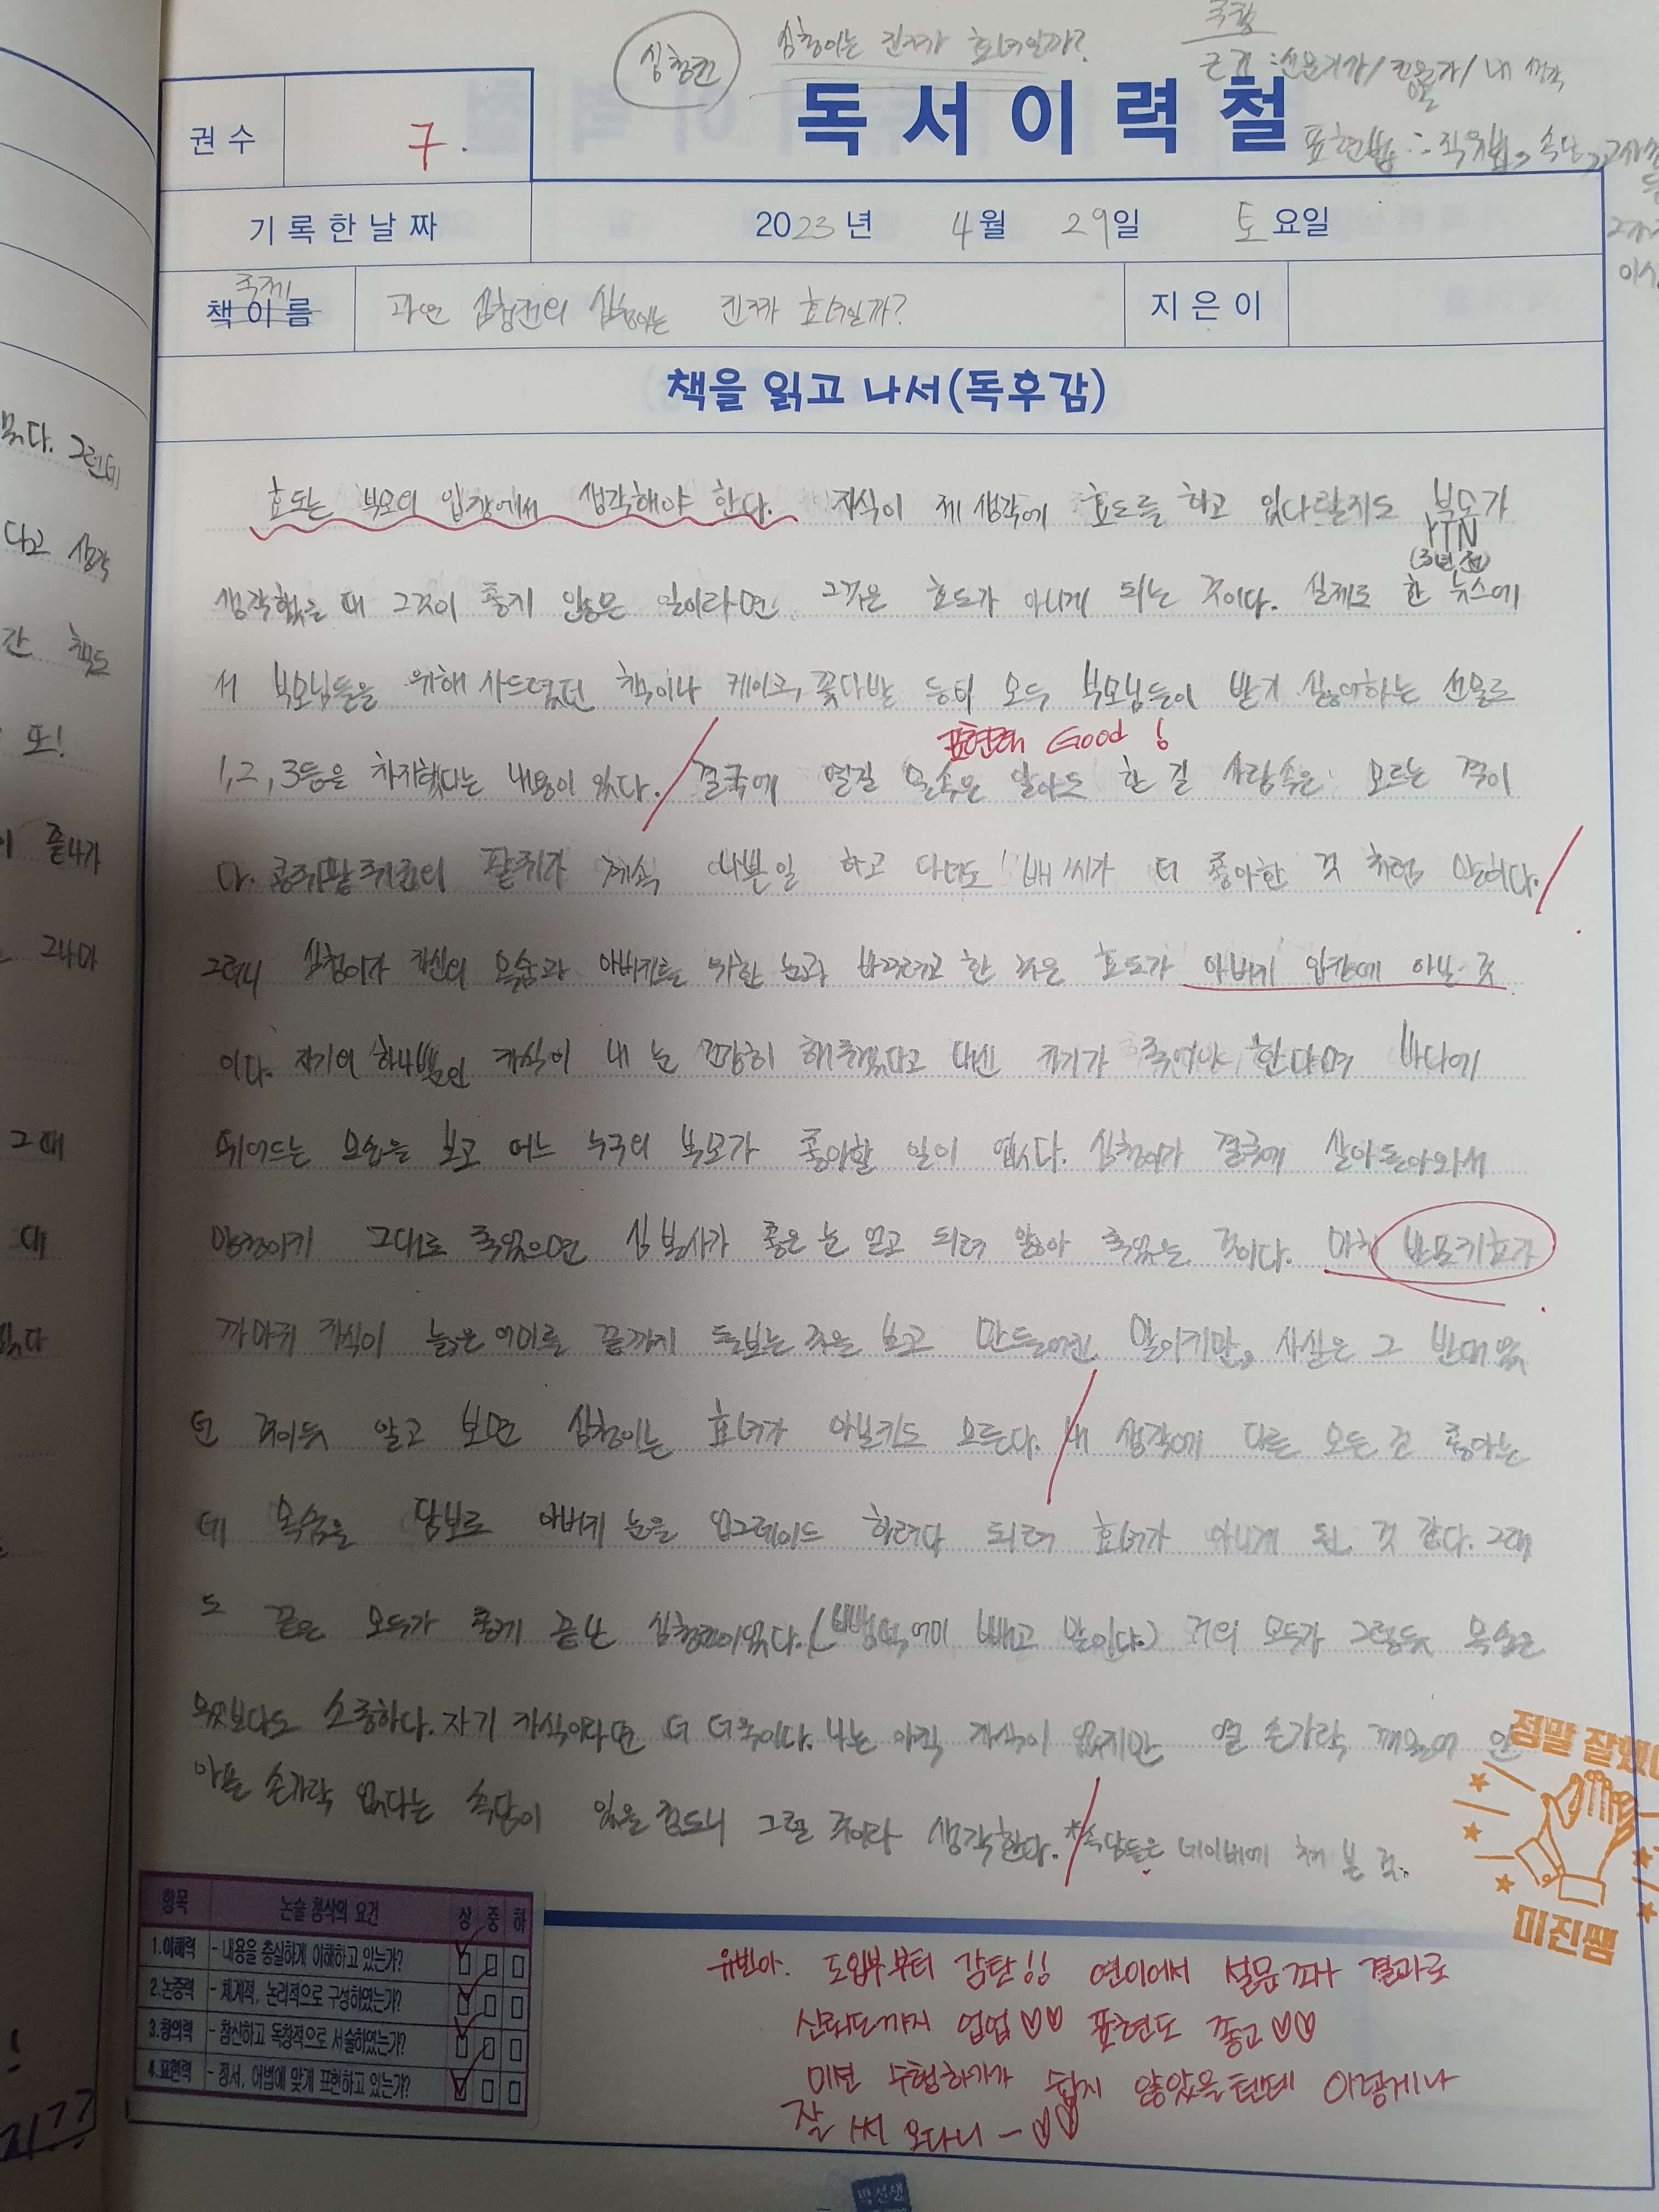 심청전 심청이는 진짜가 효녀일까?
주장
근거 : 신문기사/전문가/내 생각
표현법 : 직유법, 속담, 고사성
권수 7. 독서이력철
기록한날짜 2023년 4월 29일 토요일
책이름 주제 과연 심청전의 심청이는 진짜 효녀일까? 지은이
책을 읽고 나서(독후감)
효도는 부모의 입장에서 생각해야 한다. 자식이 제 생각에 효도를 하고 있다랄지도 부모가
YTN
(3년 전)
생각했을 때 그것이 좋지 않은 일이라면 그것은 효도가 아니게 되는 것이다. 실제로 한 뉴스에
서 부모님들을 위해 사드렸던 책이나 케이크, 꽃다발 등이 모두 부모님들이 받기 싫어하는 선물로
표현력 Good !
1, 2, 3등을 차지했다는 내용이 있다. 결국에 열길 물속은 알아도 한 길 사람속은 모르는 격이
다. 콩쥐팥쥐전의 팥쥐가 계속 나쁜일 하고 다녀도 배씨가 더 좋아한 것 처럼 말이다.
그러니 심청이가 자신의 목숨과 아버지를 위한 눈과 바꾸려고 한 것은 효도가 아버지 입장에 아닌 것
이다. 자기의 하나뿐인 자식이 내 눈 건강히 해주겠다고 대신 자기가 죽어야 한다며 바다에
뛰어드는 모습을 보고 어느 누구의 부모가 좋아할 일이 없다. 심청이가 결국에 살아돌아와서
망정이지 그대로 죽었으면 심봉사가 좋은 눈 얻고 되려 앓아 죽었을 것이다. 마치 반포지효가
까마귀 자식이 늙은 어미를 끝까지 돌보는 것을 보고 만들어진 말이지만, 사실은 그 반대였
던 것이듯 알고 보면 심청이는 효녀가 아닐지도 모른다. 내 생각에 다른 모든 건 좋았는
데 목숨을 담보로 아버지 눈을 업그레이드 하려다 되려 효녀가 아니게 된 것 같다. 그래
도 끝은 모두가 좋게 끝난 심청전이었다.(뺑덕어미 빼고 말이다.) 거의 모두가 그렇듯 목숨은
무엇보다도 소중하다. 자기 자식이라면 더 더욱이다. 나는 아직 자식이 없지만 열 손가락 깨물어 안
아픈 손가락 없다는 속담이 있을 정도니 그럴 것이라 생각한다. *속담들은 네이버에 쳐 본 것.
정말 잘했
미진쌤
항목 논술 첨삭의 요건 상 중 하
1.이해력 - 내용을 충실하게 이해하고 있는가?
2.논증력 - 체계적, 논리적으로 구성하였는가?
3.창의력 - 참신하고 독창적으로 서술하였는가?
4.표현력 - 정서, 어법에 맞게 표현하고 있는가?
유빈아. 도입부부터 감탄!! 연이어서 설문조사 결과로
신뢰도까지 업업♡♡ 표현도 좋고♡♡
미션 수행하기가 쉽지 않았을텐데 이렇게나
잘 써 오다니~♡♡
박선생